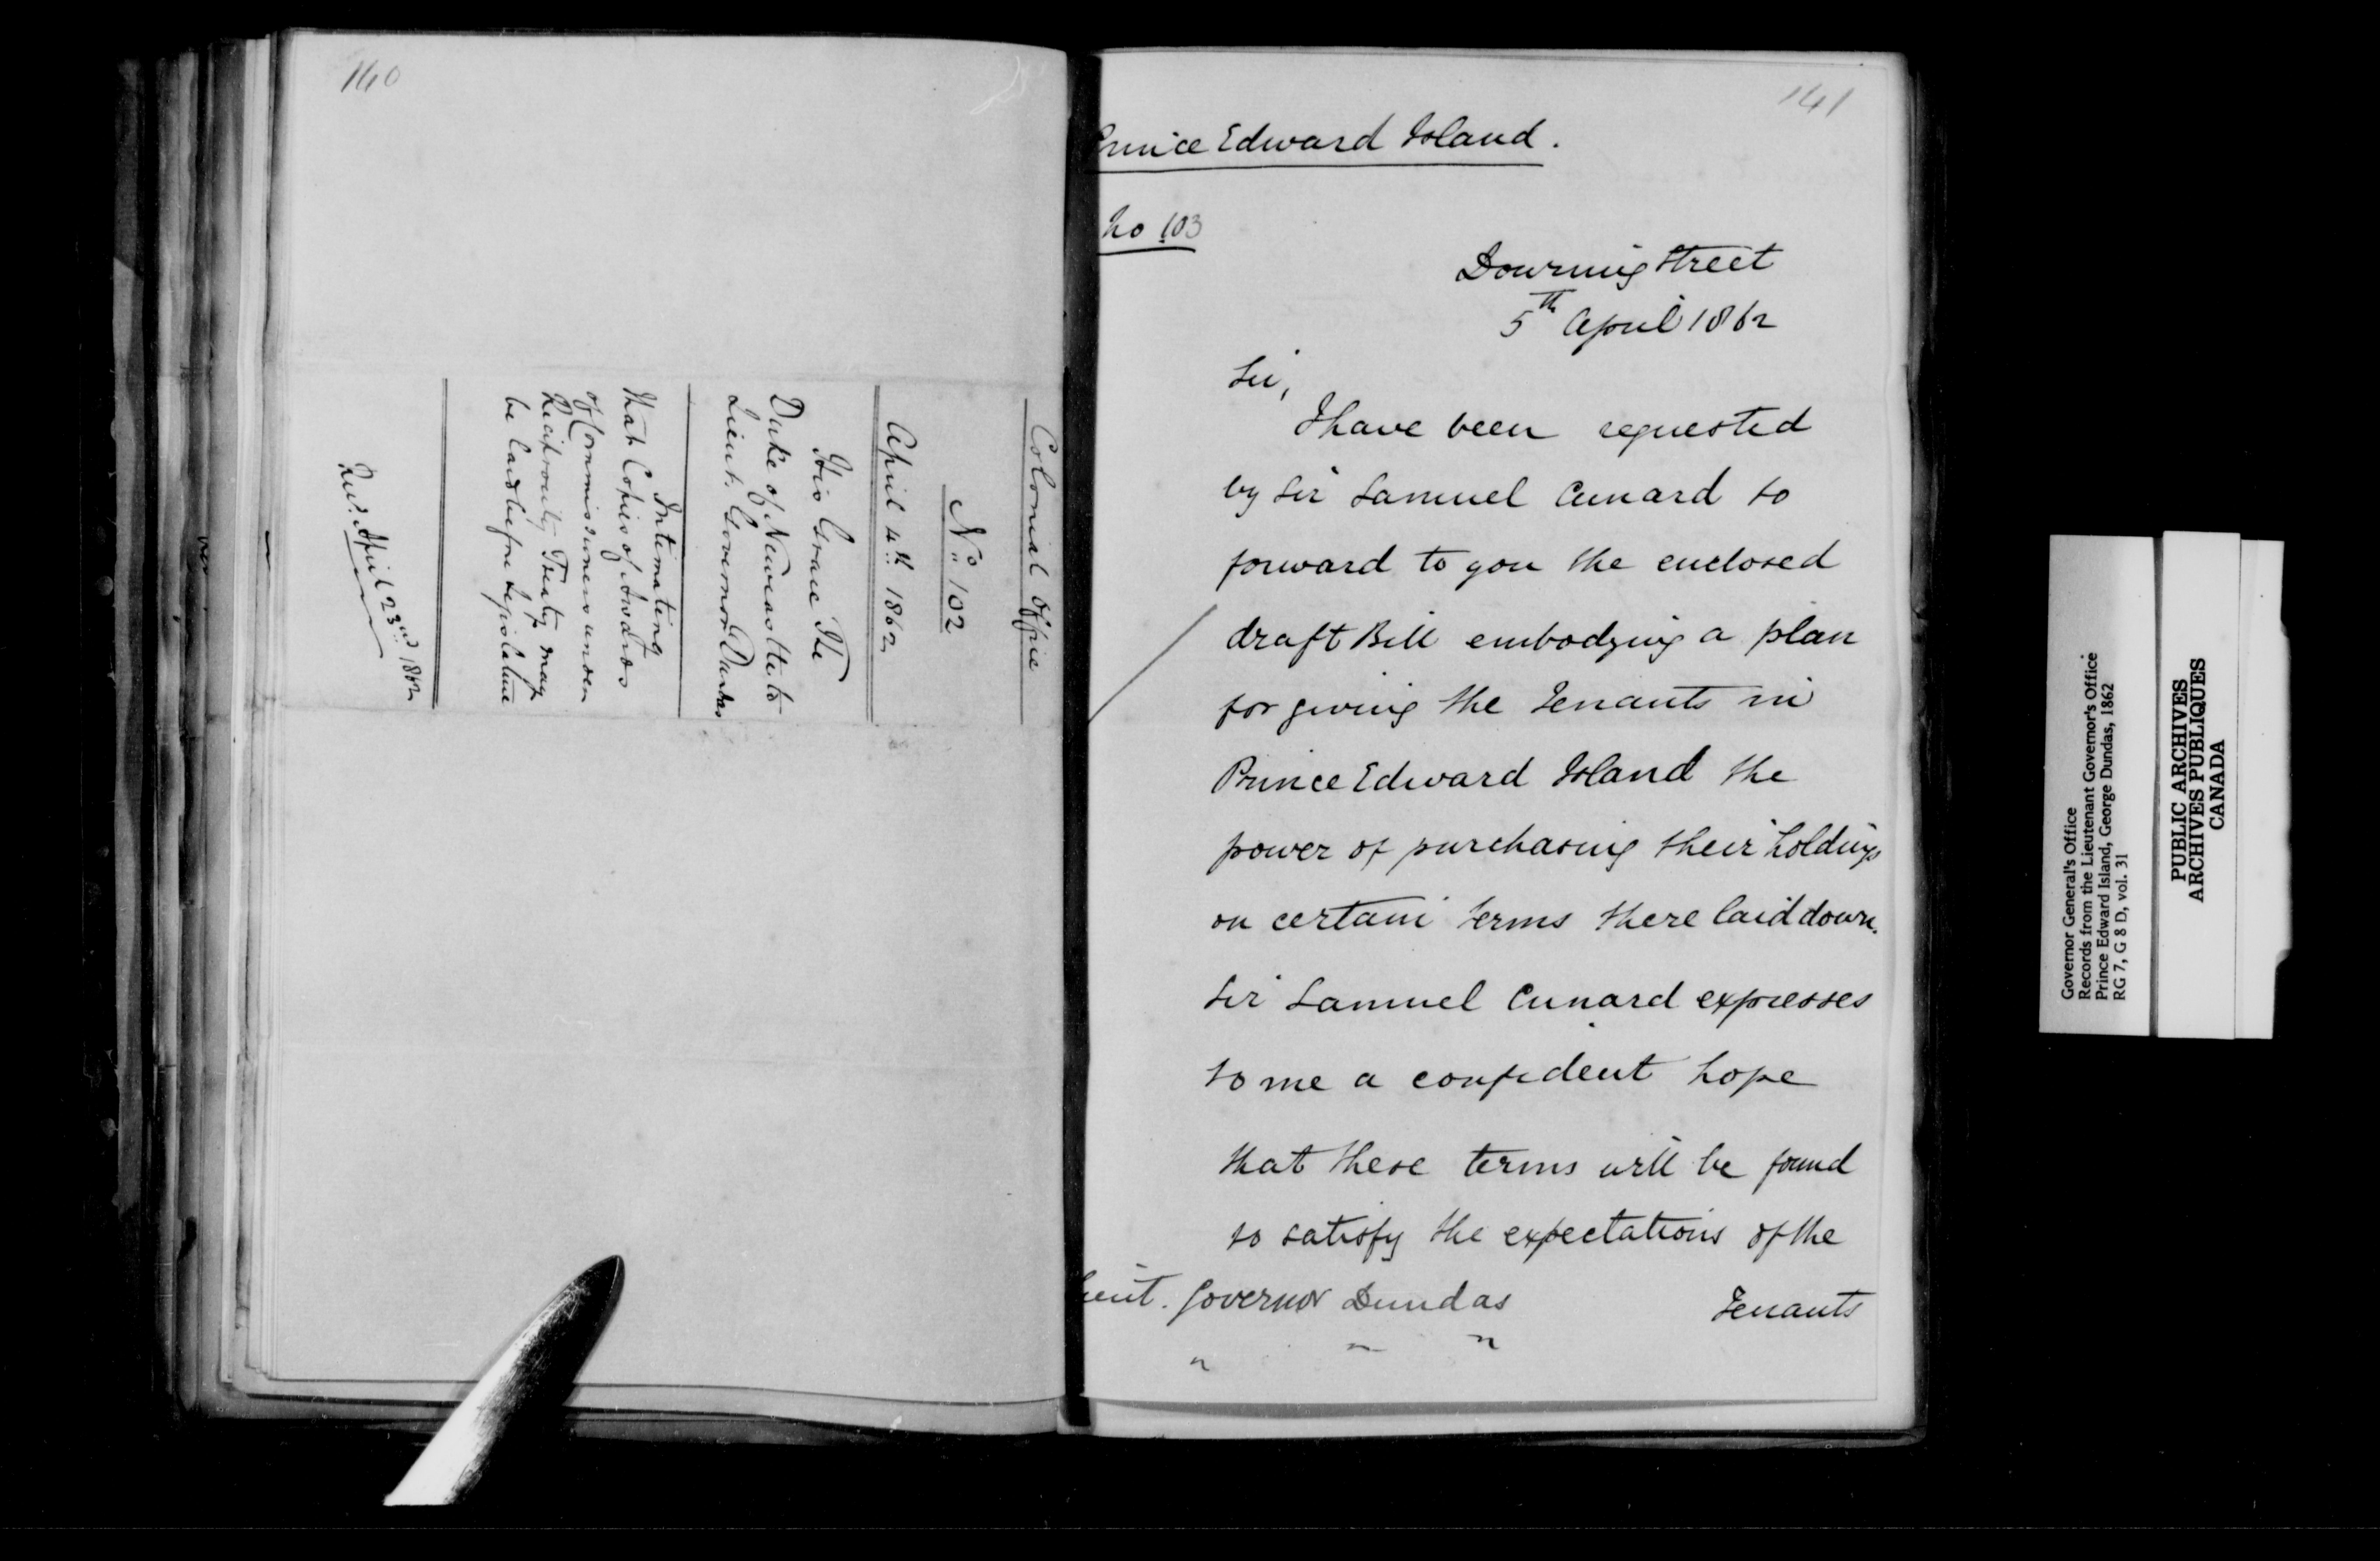 140
Colonial Office
No. 102
April 4th 1862
His Grace The
Duke of Newcastle to
Lieut. Governor Dundas
Intimating
that Copies of Awards
of Commissioners under
Reciprocity Treaty may
be laid before Legislature
Recd. April 23rd 1862
141
Prince Edward Island.
No 103
Downing Street
5th April 1862
Sir,
I have been requested
by Sir Samuel Cunard to
forward to you the enclosed
draft Bill embodying a plan
for giving the Tenants in
Prince Edward Island the
power of purchasing their holdings
on certain terms there laid down.
Sir Samuel Cunard expresses
to me a confident hope
that these terms will be found
to satisfy the expectations of the
Tenants
Lieut. Governor Dundas
" " "
Governor General's Office
Records from the Lieutenant Governor's Office
Prince Edward Island, George Dundas, 1862
RG 7, G 8 D, vol. 31
PUBLIC ARCHIVES
ARCHIVES PUBLIQUES
CANADA